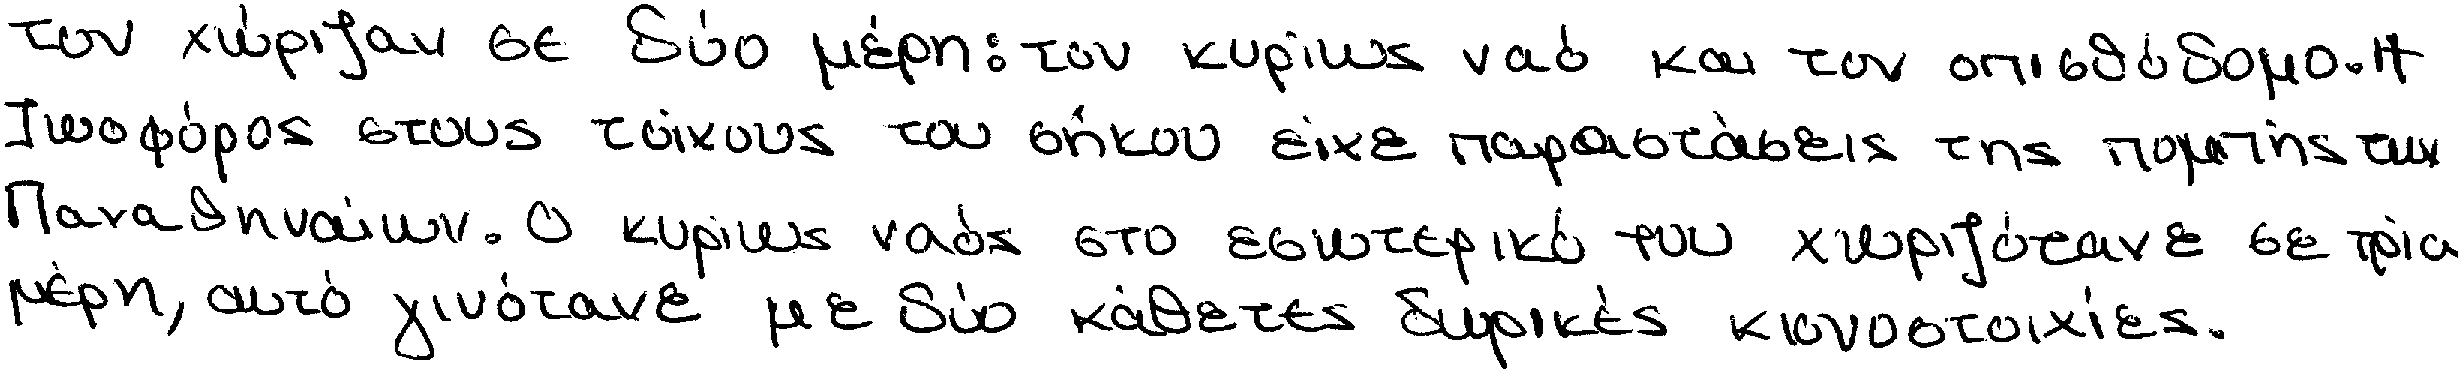 τον χώριζαν σε δύο μέρη: τον κυρίως ναό και τον οπισθόδομο. Η
Ζωοφόρος στους τοίχους του σήκου είχε παραστάσεις της πομπής των
Παναθηναίων. Ο κυρίως ναός στο εσωτερικό του χωριζότανε σε τρία
μέρη, αυτό γινότανε με δύο κάθετες δωρικές κιονοστοιχίες.